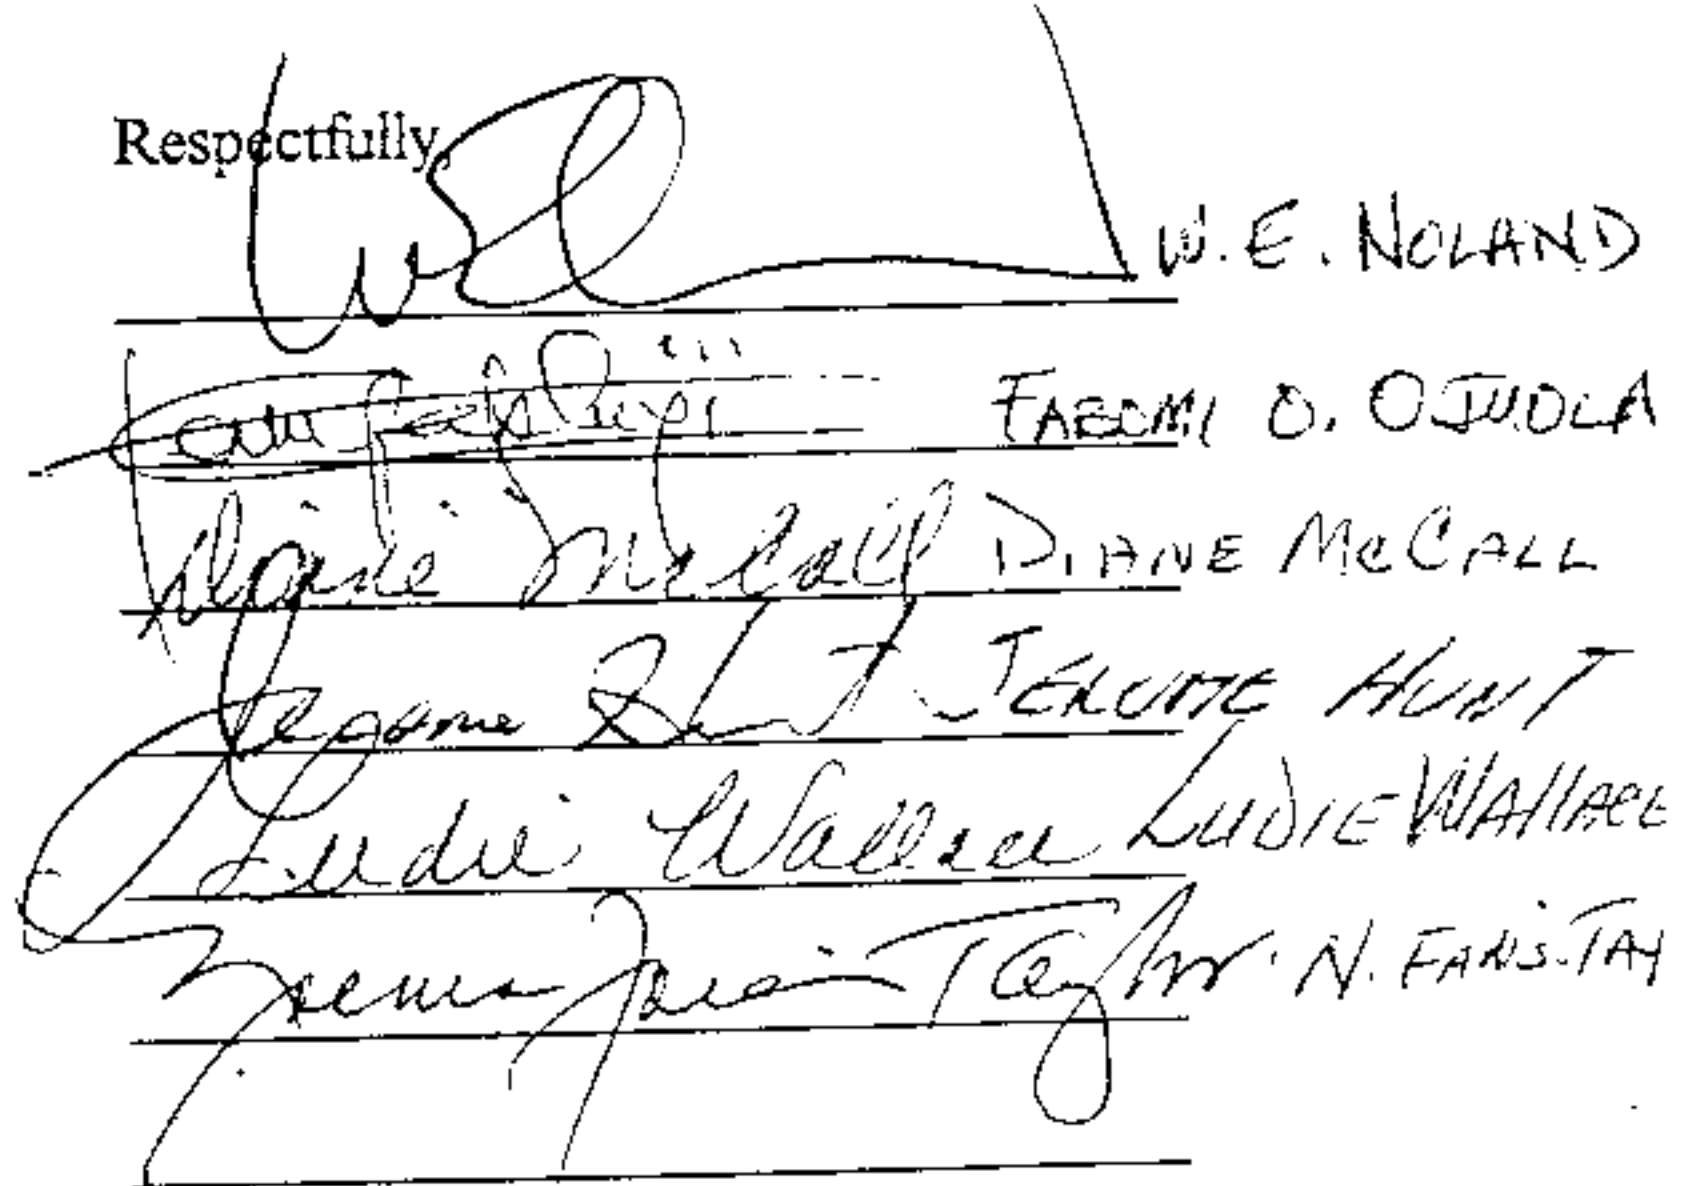 Respectfully,
W. E. NOLAND
FABOMI O. OJUOLA
Diane McCall DIANE McCALL
Jerome Hunt JEROME HUNT
Ludie Wallace LUDIE WALLACE
Taylor N. FARIS-TAY